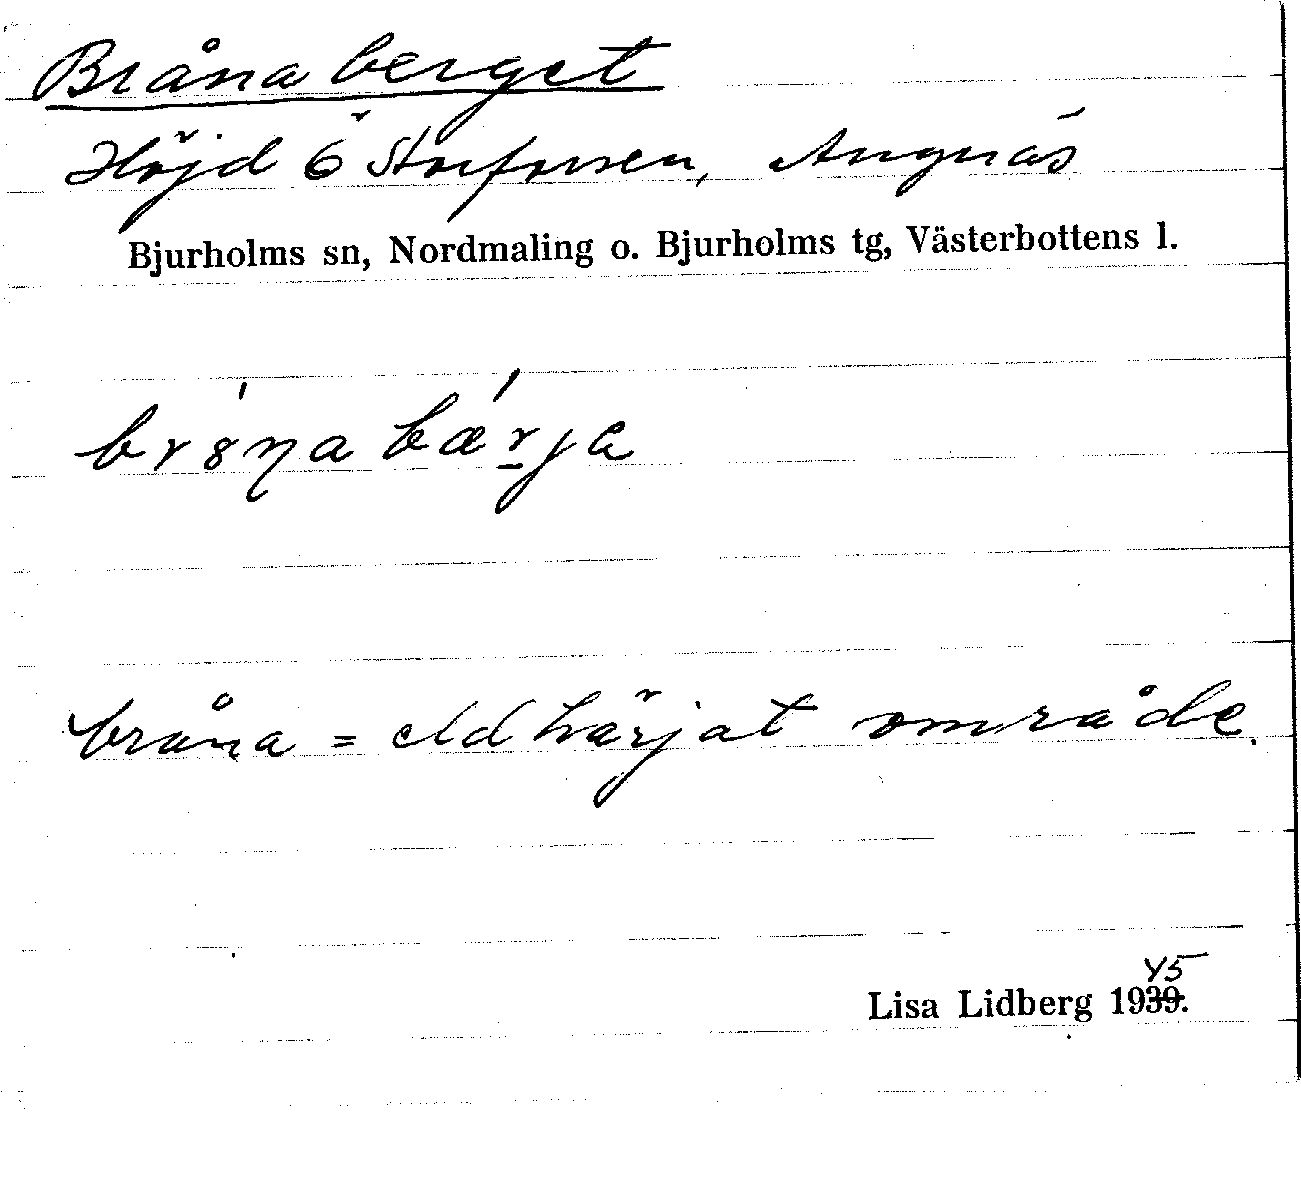 Brånaberget
Höjd Ö Storforsen, Angnäs
Bjurholms sn, Nordmaling o. Bjurholms tg, Västerbottens l.
bråna = eldhärjat område.
45
Lisa Lidberg 1939.